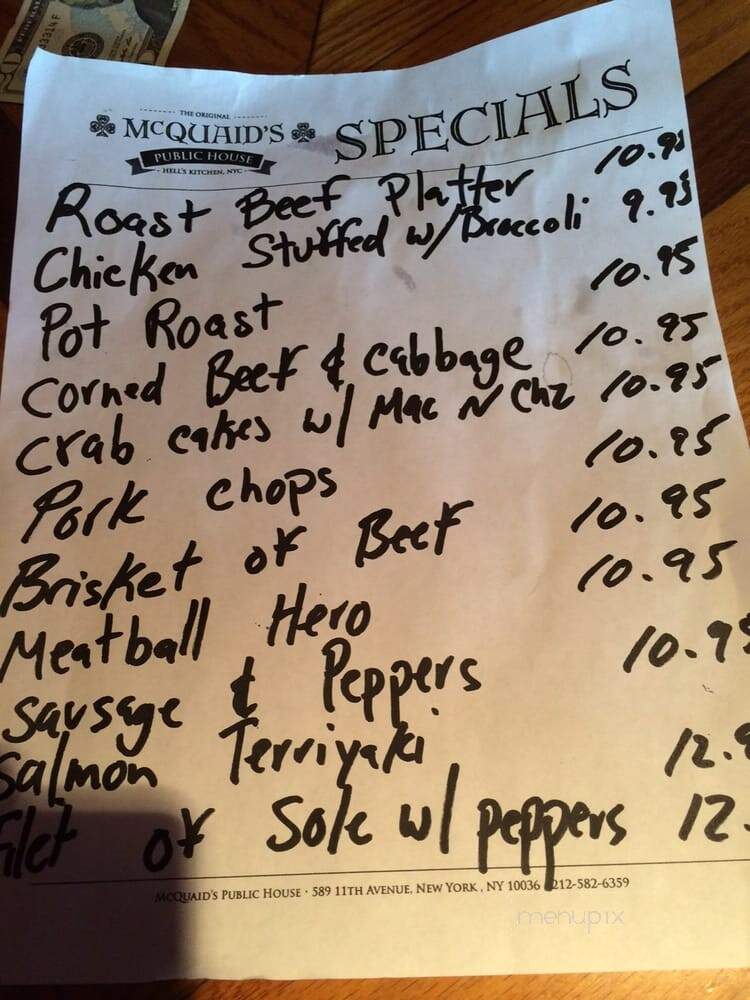 THE ORIGINAL
McQUAID'S
PUBLIC HOUSE
HELL'S KITCHEN, NYC
SPECIALS
Roast Beef Platter 10.95
Chicken Stuffed w/Broccoli 9.95
Pot Roast 10.95
Corned Beef & Cabbage 10.95
Crab cakes w/ Mac N Chz 10.95
Pork chops 10.95
Brisket of Beef 10.95
Meatball Hero 10.95
Sausage & Peppers 10.95
Salmon Terriyaki 12.9
Filet of Sole w/ peppers 12.
McQUAID'S PUBLIC HOUSE · 589 11TH AVENUE, NEW YORK, NY 10036 212-582-6359
menupix